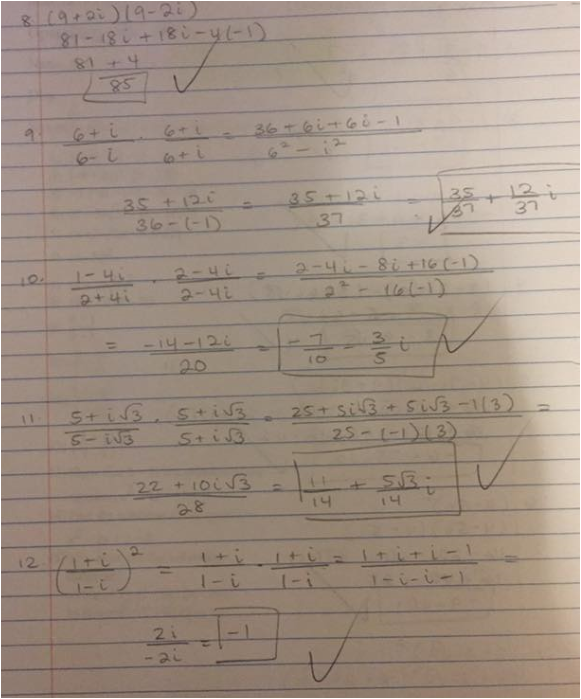 8 (9+2i)(9-2i)
81-18i+18i-4(-1)
81+4
85 ✓
9. (6+i)/(6-i) · (6+i)/(6+i) = (36+6i+6i-1)/(6²-i²)
(35+12i)/(36-(-1)) = (35+12i)/37 = 35/37 + 12/37 i ✓
10. (1-4i)/(2+4i) · (2-4i)/(2-4i) = (2-4i-8i+16(-1))/(2²-16(-1))
= (-14-12i)/20 = -7/10 - 3/5 i ✓
11. (5+i√3)/(5-i√3) · (5+i√3)/(5+i√3) = (25+5i√3+5i√3-1(3))/(25-(-1)(3)) =
(22+10i√3)/28 = 11/14 + 5√3/14 i ✓
12. ((1+i)/(1-i))² = (1+i)/(1-i) · (1+i)/(1-i) = (1+i+i-1)/(1-i-i-1) =
2i/-2i = -1 ✓